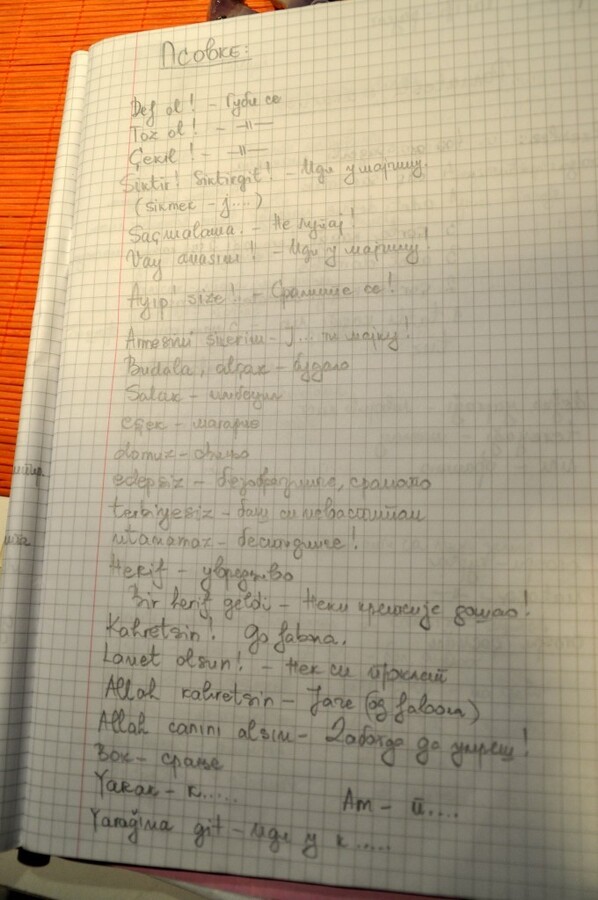 Псовке:
Def ol! - Губи се
Toz ol! - -||-
Çekil! - -||-
Siktir! Siktirgit! - Иди у мајчину.
(sikmek - ј....)
Saçmalama. - Не лупај!
Vay anasını! - Иди у мајчину!
Ayıp! size! - Срамите се!
Anesini sikerim - Ј... ти мајку!
Budala, alçak - будала
Salak - имбецил
eşek - магарац
domuz - свиња
edepsiz - безобразниче, срамото
terbiyesiz - баш си неваспитан
utanamaz - бестидниче!
Herif - увредљиво
Bir herif geldi - Неки крелсије дошао!
Kahretsin! До ђавола.
Lanet olsun! - Нек си проклет
Allah kahretsin - Јаче (од ђавола)
Allah canını alsın - Дабогда да умреш!
Bok - срање
Yarak - к..... Am - п....
Yarağıma git - Иди у к.....